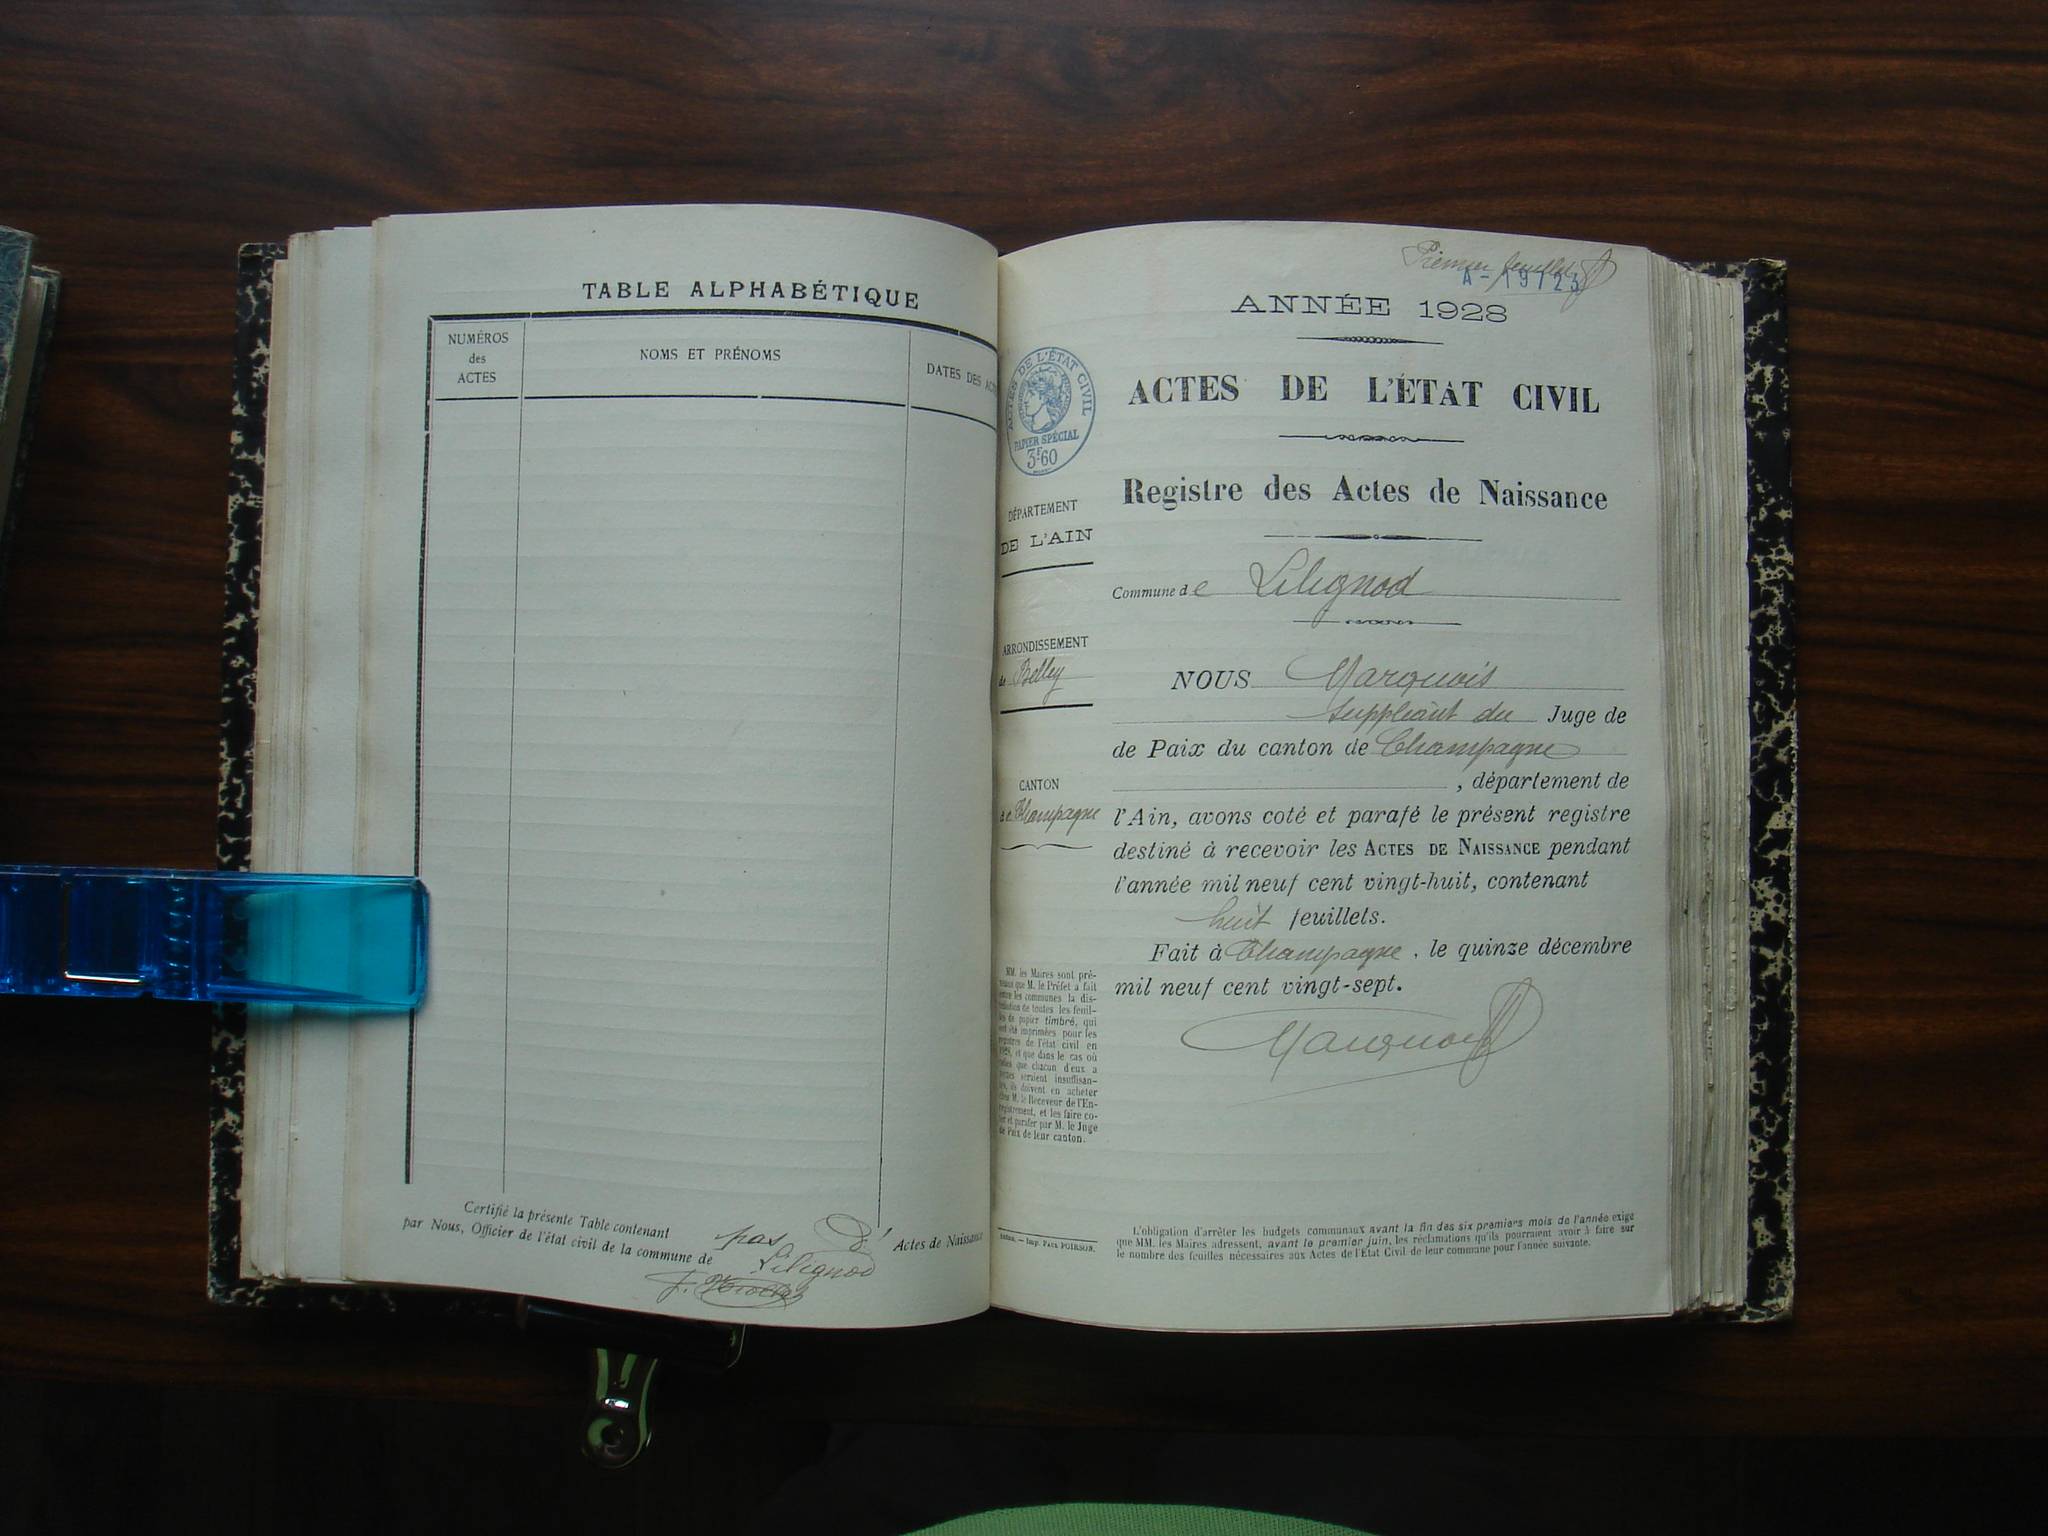 TABLE ALPHABÉTIQUE
NUMÉROS
des
ACTES
NOMS ET PRÉNOMS
DATES DES
Certifié la présente Table contenant pas d' Actes de Naissance
par Nous, Officier de l'état civil de la commune de Lilignod
Premier feuillet
A-19123
ANNÉE 1928
ACTES DE L'ÉTAT CIVIL
PAPIER SPÉCIAL
3F60
ACTES DE L'ÉTAT CIVIL
Registre des Actes de Naissance
DÉPARTEMENT
DE L'AIN
Commune de Lilignod
ARRONDISSEMENT
de Belley
CANTON
de Champagne
NOUS Marquois
Suppléant du Juge de
de Paix du canton de Champagne
, département de
l'Ain, avons coté et parafé le présent registre
destiné à recevoir les ACTES DE NAISSANCE pendant
l'année mil neuf cent vingt-huit, contenant
huit feuillets.
Fait à Champagne, le quinze décembre
mil neuf cent vingt-sept.
Marquois
MM. les Maires sont pré-
venus que M. le Préfet a fait
entre les communes la dis-
tribution de toutes les feuil-
les de papier timbré, qui
ont été imprimées pour les
registres de l'état civil en
1928, et que dans le cas où
celles que chacun d'eux a
reçues seraient insuffisan-
tes, ils doivent en acheter
chez M. le Receveur de l'En-
registrement, et les faire co-
ter et parafer par M. le Juge
de Paix de leur canton.
Imp. Paul POIRSON.
L'obligation d'arrêter les budgets communaux avant la fin des six premiers mois de l'année exige
que MM. les Maires adressent, avant le premier juin, les réclamations qu'ils pourraient avoir à faire sur
le nombre des feuilles nécessaires aux Actes de l'État Civil de leur commune pour l'année suivante.